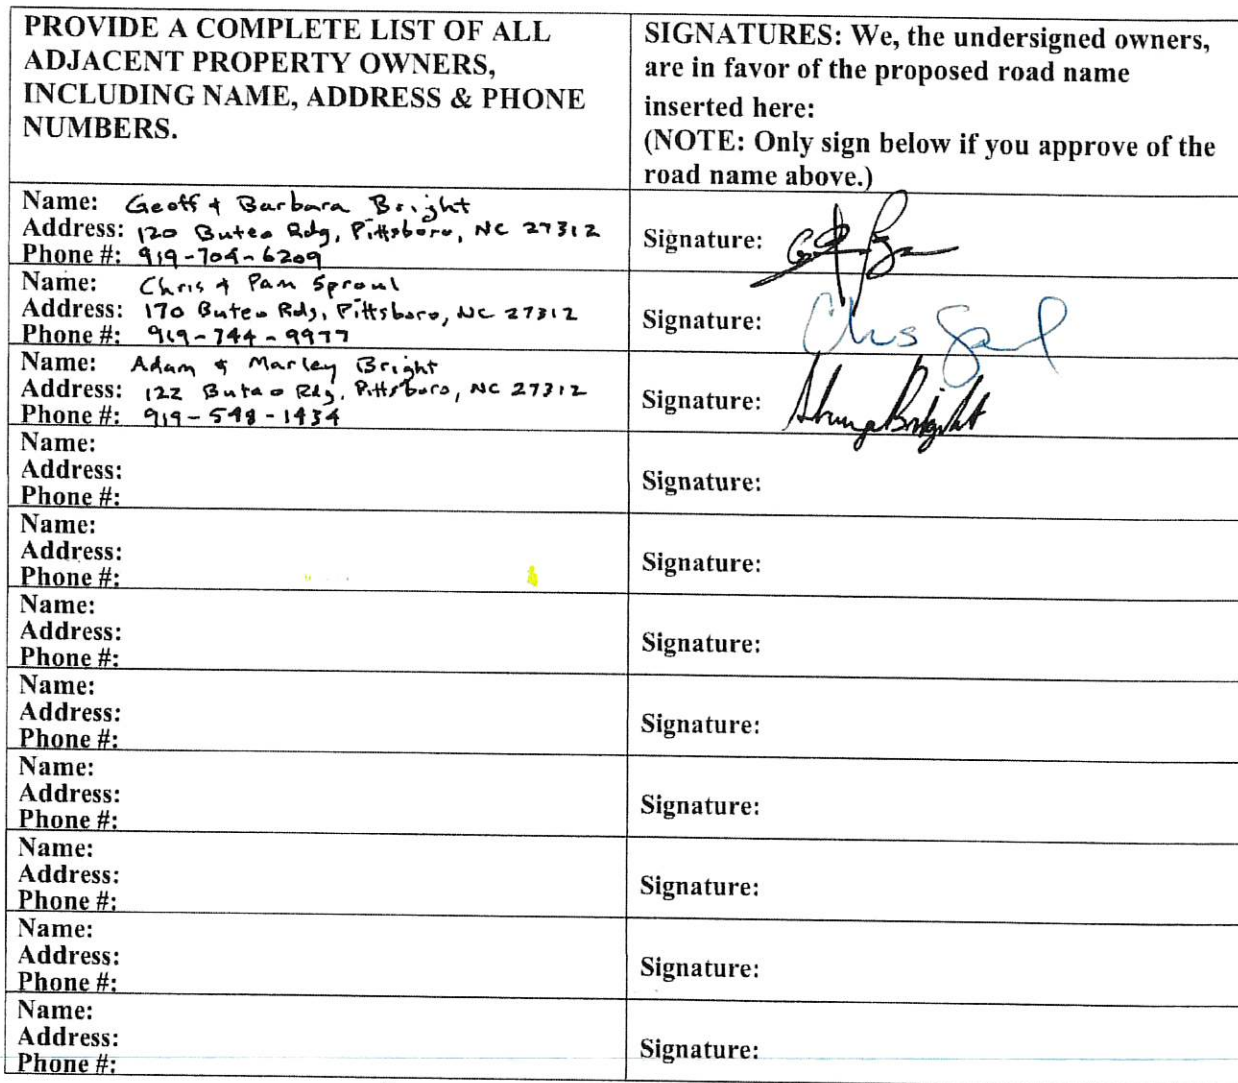 PROVIDE A COMPLETE LIST OF ALL
ADJACENT PROPERTY OWNERS,
INCLUDING NAME, ADDRESS & PHONE
NUMBERS.
SIGNATURES: We, the undersigned owners,
are in favor of the proposed road name
inserted here:
(NOTE: Only sign below if you approve of the
road name above.)
Name: Geoff & Barbara Bright
Address: 120 Buteo Rdg, Pittsboro, NC 27312
Phone #: 919-704-6209
Signature:
Name: Chris & Pam Sproul
Address: 170 Buteo Rdg, Pittsboro, NC 27312
Phone #: 919-744-9977
Signature:
Name: Adam & Marley Bright
Address: 122 Buteo Rdg, Pittsboro, NC 27312
Phone #: 919-548-1434
Signature:
Name:
Address:
Phone #:
Signature:
Name:
Address:
Phone #:
Signature:
Name:
Address:
Phone #:
Signature:
Name:
Address:
Phone #:
Signature:
Name:
Address:
Phone #:
Signature:
Name:
Address:
Phone #:
Signature:
Name:
Address:
Phone #:
Signature:
Name:
Address:
Phone #:
Signature: